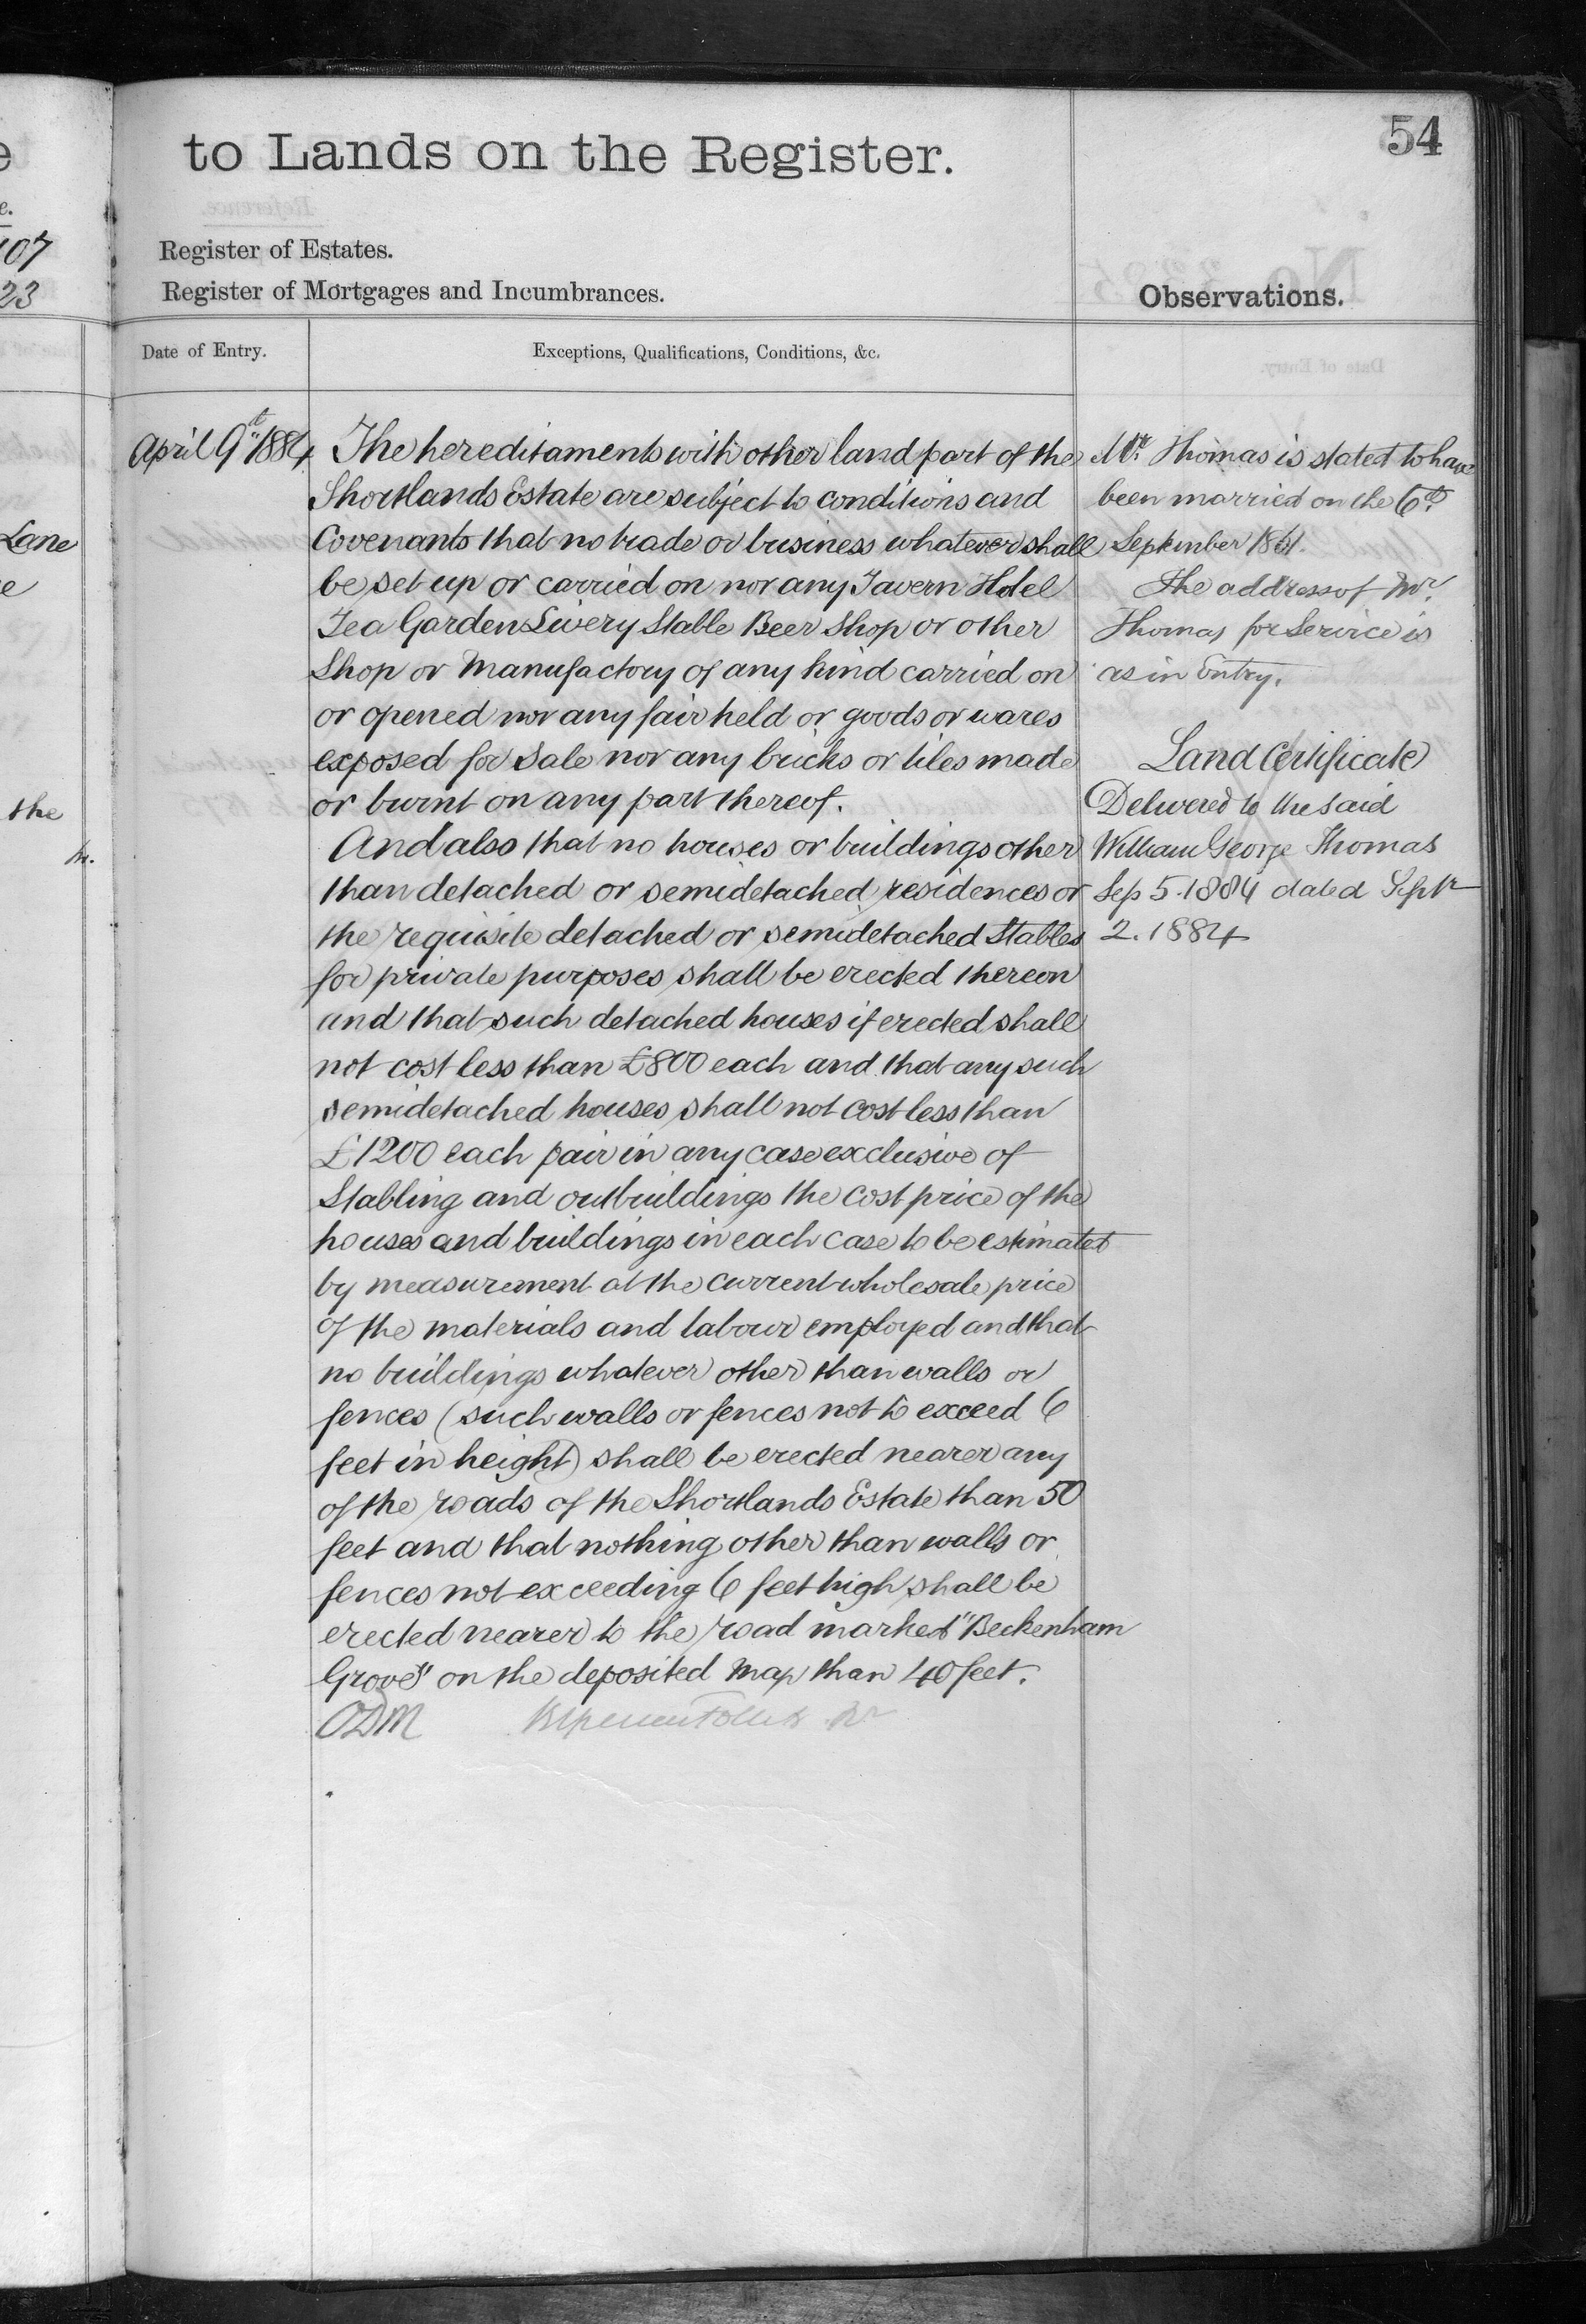 54
to Lands on the Register.
Register of Estates.
Register of Mortgages and Incumbrances.
Observations.
Date of Entry.
Exceptions, Qualifications, Conditions, &c.
April 9th 1884
The hereditaments with other land part of the
Shortlands Estate are subject to conditions and
Covenants that no trade or business whatever shall
be set up or carried on nor any Tavern Hotel
Tea Garden Livery Stable Beer Shop or other
Shop or Manufactory of any kind carried on
or opened nor any fair held or goods or wares
exposed for Sale nor any bricks or tiles made
or burnt on any part thereof.
And also that no houses or buildings other
than detached or semidetached residences or
the requisite detached or semidetached Stables
for private purposes shall be erected thereon
and that such detached houses if erected shall
not cost less than £800 each and that any such
semidetached houses shall not cost less than
£1200 each pair in any case exclusive of
Stabling and outbuildings the cost price of the
houses and buildings in each case to be estimated
by measurement at the current wholesale price
of the materials and labour employed and that
no buildings whatever other than walls or
fences (such walls or fences not to exceed 6
feet in height) shall be erected nearer any
of the roads of the Shortlands Estate than 50
feet and that nothing other than walls or
fences not exceeding 6 feet high shall be
erected nearer to the road marked "Beckenham
Grove" on the deposited Map than 40 feet.
ODM
Mr. Thomas is stated to have
been married on the 6th
September 1861.
The address of Mr.
Thomas for Service is
as in Entry.
Land Certificate
Delivered to the said
William George Thomas
Sep 5. 1884 dated Septr
2. 1884
107
23
Lane
the